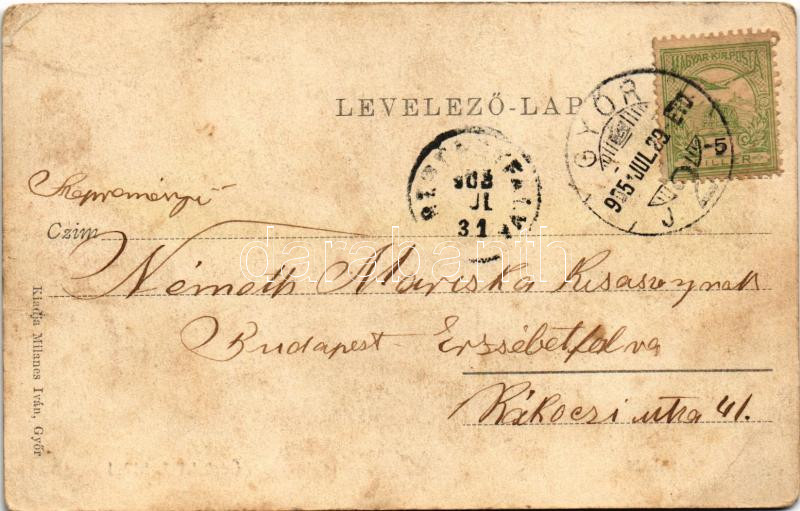 LEVELEZŐ-LAP
MAGYAR·KIR·POSTA
GYŐR
905 JUL. 29
-5
31
Czim
Németh Mariska Kisasszonynak
Budapest-Erzsébetfalva
Rákoczi utza 41.
Kiadja Milanes Iván, Győr
darabanth